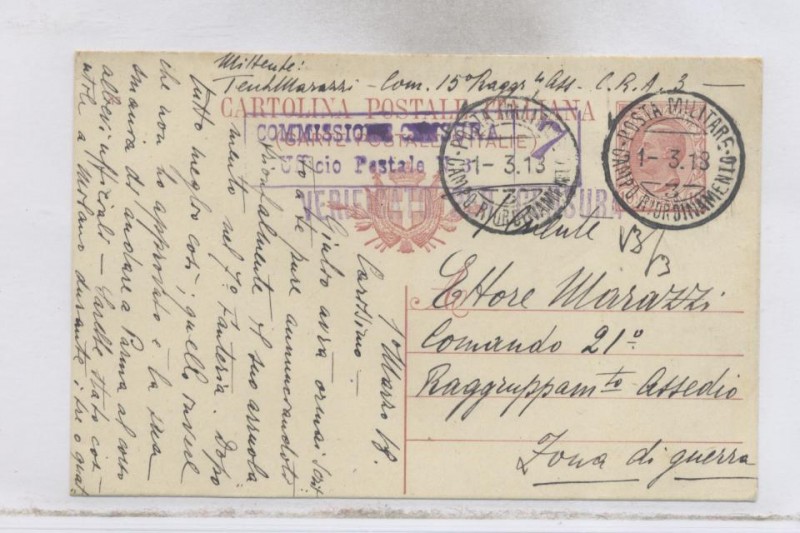 Mittente:
Ten Marazzi - Com. 15° Raggr.to Ass. - C.R.A. 3 -
CARTOLINA POSTALE ITALIANA
(CARTE POSTALE D'ITALIE)
COMMISSIONE CENSURA
Ufficio Postale
VERIFICATO CENSURA
POSTA MILITARE
CAMPO RIORDINAMENTO
1-3.18
3
POSTA MILITARE
CAMPO RIORDINAMENTO
1-3.18
3
Tenente
Ettore Marazzi
Comando 21°
Raggruppamto Assedio
Zona di guerra
1° Marzo 18.
Carissimo -
Giulio avrà ormai scrit
to a te pure annunciandoti
trionfalmente il suo arruola
mento nel 7° Fanteria. Dopo
tutto meglio così; quello invece
che non ho approvato è la sua
smania di andare a Parma al corso
allievi ufficiali - Sarebbe stato con-
a Milano durante i tre o quat